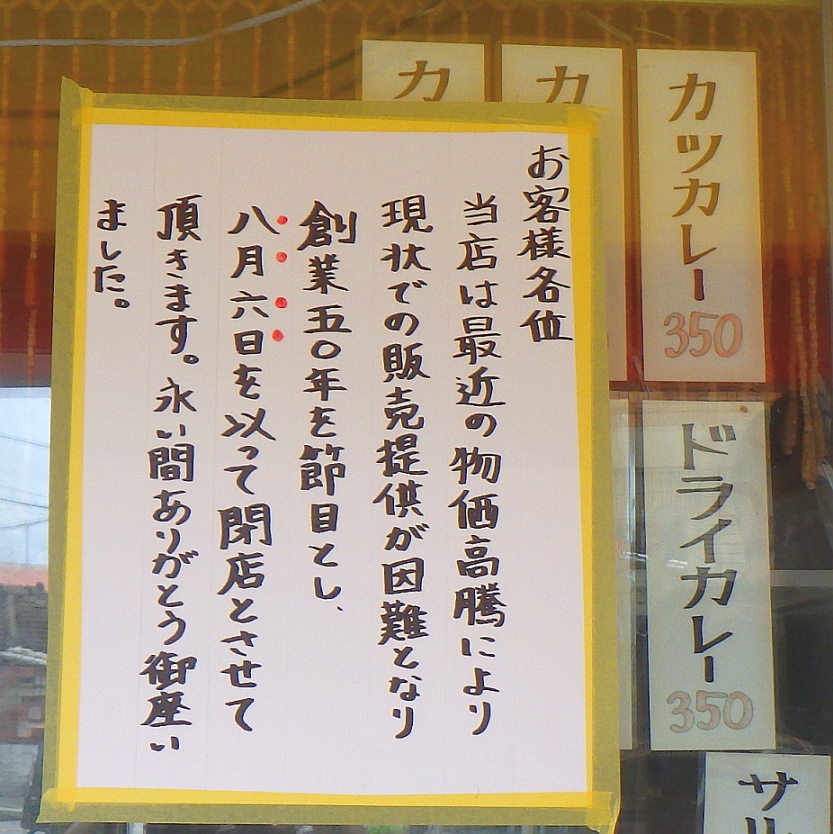 お客様各位
当店は最近の物価高騰により
現状での販売提供が因難となり
創業五〇年を節目とし、
八月六日を以って閉店とさせて
頂きます。永い間ありがとう御座い
ました。
カツカレー
350
ドライカレー
350
カ
カ
サ